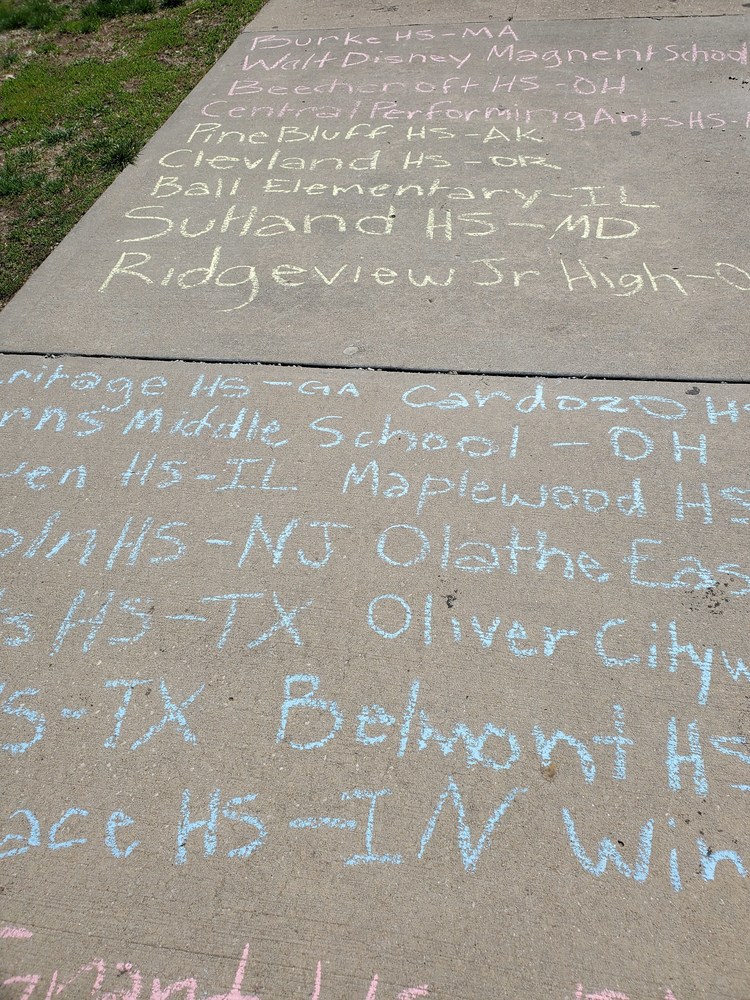 Burke HS-MA
Walt Disney Magnent School
Beechcroft HS-OH
Central Performing Arts HS-
Pine Bluff HS-AK
Clevland HS-OR
Ball Elementary-IL
Suitland HS-MD
Ridgeview Jr High-O
ritage HS-GA Cardozo HS
rns Middle School - OH
ven HS-IL Maplewood HS
oln HS-NJ Olathe Eas
s HS-TX Oliver Cityw
S-TX Belmont HS
ace HS-IN Win